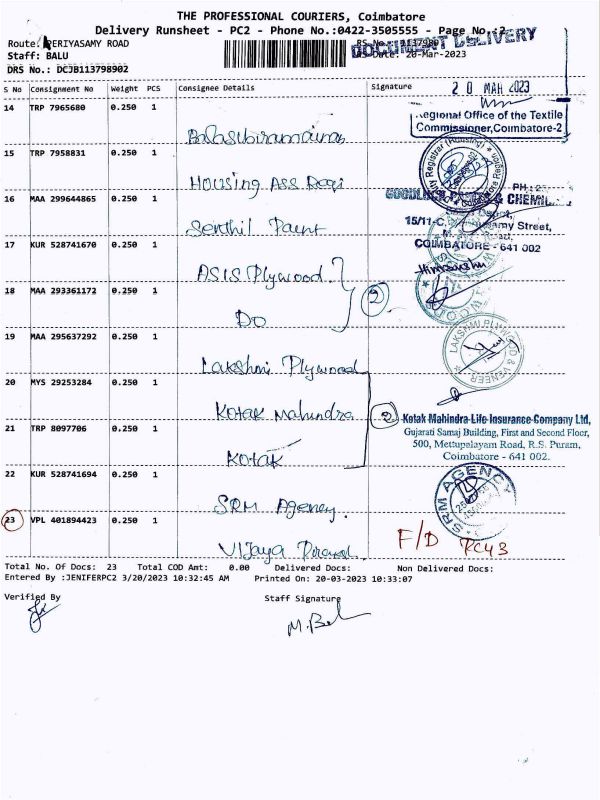 THE PROFESSIONAL COURIERS, Coimbatore
Delivery Runsheet - PC2 - Phone No.:0422-3505555 - Page No.:2
DOCUMENT DELIVERY
Route: PERIYASAMY ROAD
Staff: BALU
RS Date: 20-Mar-2023
DRS No.: DCJB113798902
S No Consignment No Weight PCS Consignee Details Signature
20 MAR 2023
14 TRP 7965680 0.250 1
Regional Office of the Textile
Commissioner,Coimbatore-2
15 TRP 7958831 0.250 1
Housing Ass
16 MAA 299644865 0.250 1
& CHEMI
Senthil Paint
15/11-C, Street,
17 KUR 528741670 0.250 1
COIMBATORE - 641 002
ASIS Plywood
18 MAA 293361172 0.250 1
2
Do
19 MAA 295637292 0.250 1
LAKSHMI PLYWOOD & VENEER
Lakshmi Plywood
20 MYS 29253284 0.250 1
Kotak Mahindra
2 Kotak Mahindra Life Insurance Company Ltd,
21 TRP 8097706 0.250 1
Gujarati Samaj Building, First and Second Floor,
500, Mettupalayam Road, R.S. Puram,
Coimbatore - 641 002.
Kotak
22 KUR 528741694 0.250 1
SRM AGENCY
SRM Agency
23 VPL 401894423 0.250 1
F/D
Vijaya
Total No. Of Docs: 23 Total COD Amt: 0.00 Delivered Docs: Non Delivered Docs:
Entered By :JENIFERPC2 3/20/2023 10:32:45 AM Printed On: 20-03-2023 10:33:07
Verified By Staff Signature